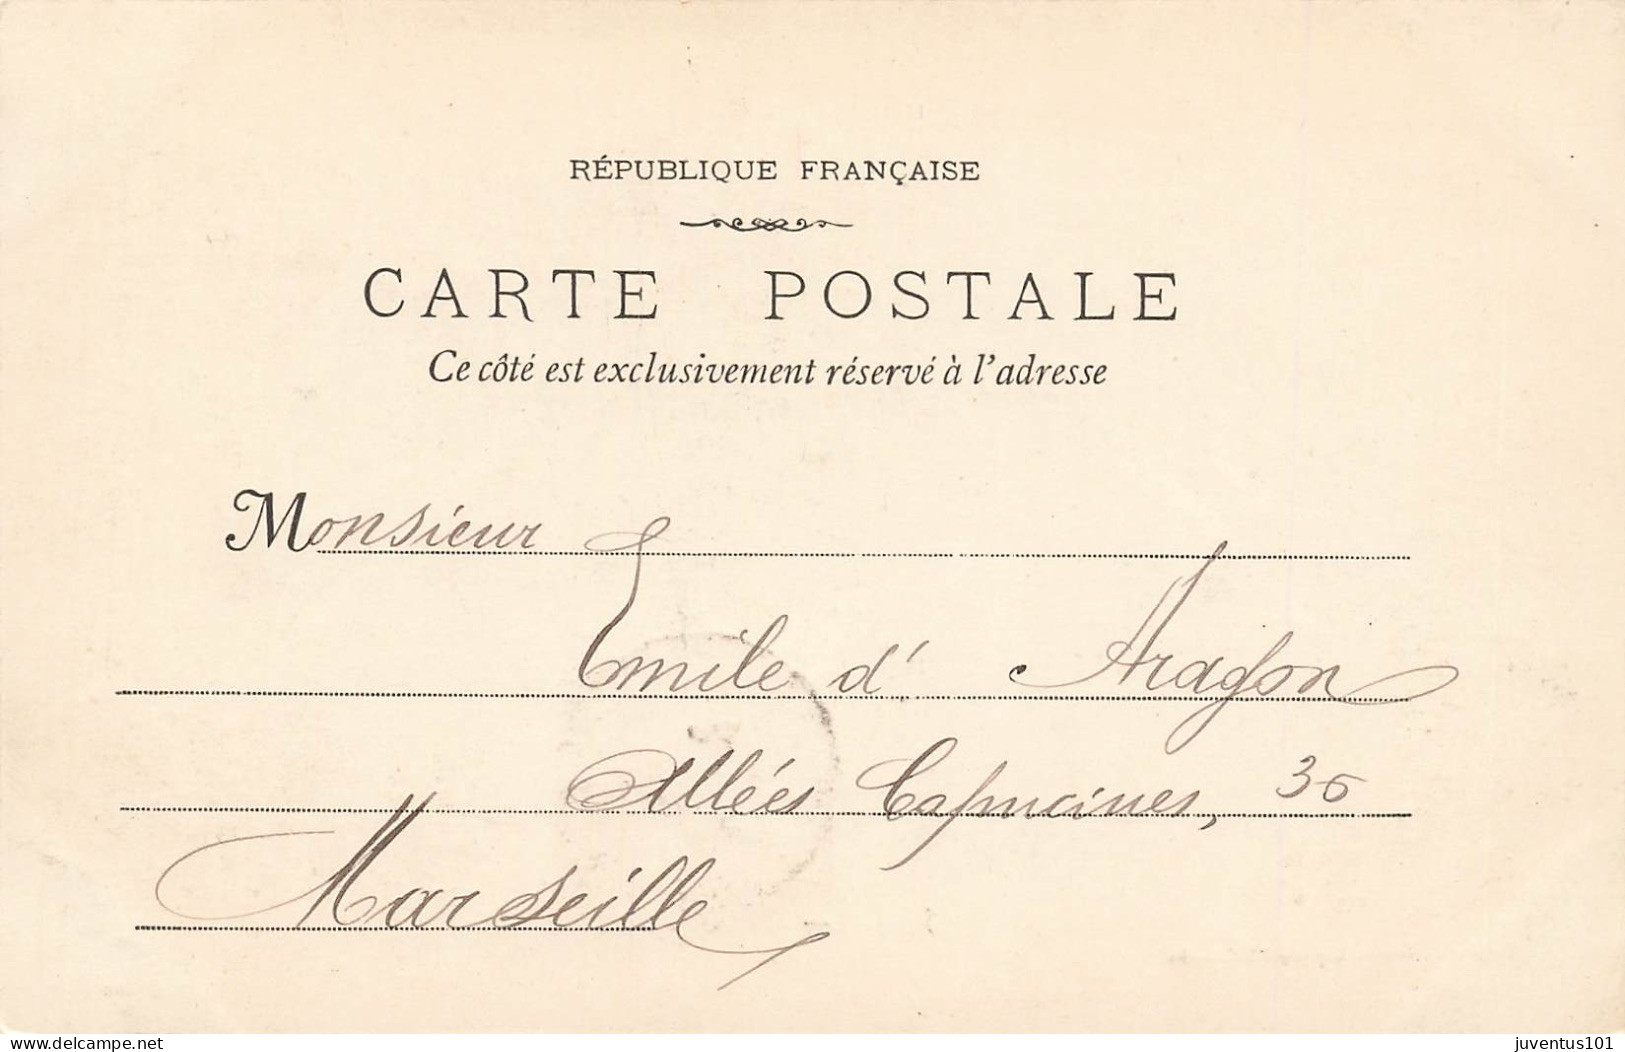 RÉPUBLIQUE FRANÇAISE
CARTE POSTALE
Ce côté est exclusivement réservé à l'adresse
Monsieur
Emile d' Aragon
Allées Capucines, 36
Marseille
delcampe.net
juventus101